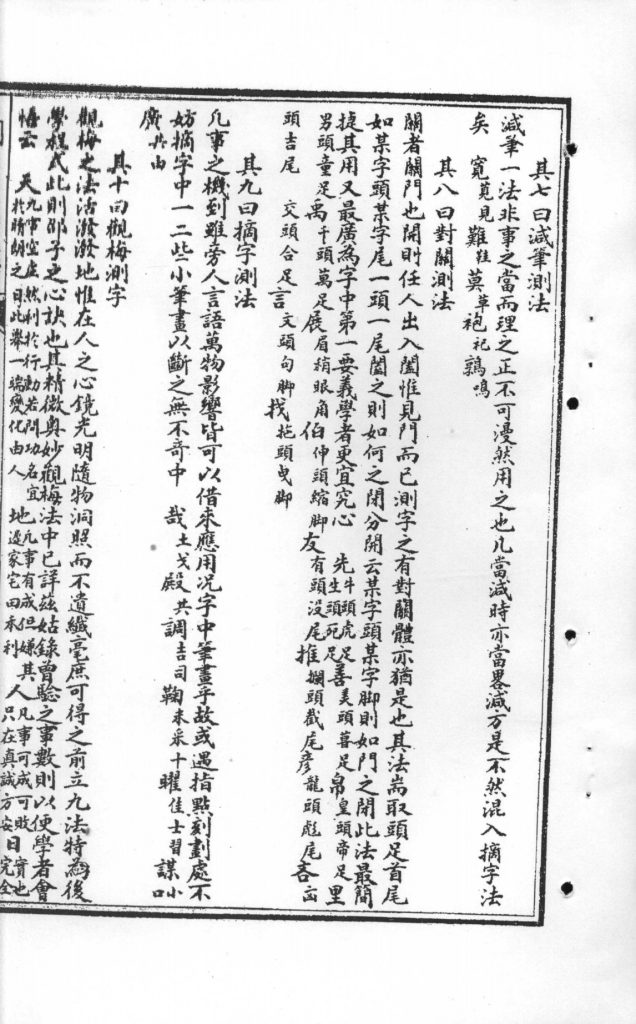 其七曰減筆測法
減筆一法非事之當而理之正不可漫然用之也凡當減時亦當畧減方是不然混入摘字法
矣 寬莧見 難鞋 莫草 袍祀 鷄鳴
其八曰對關測法
關者關門也開則任人出入闔惟見門而已測字之有對關體亦猶是也其法耑取頭足首尾
如某字頭某字尾一頭一尾闔之則如何之閉分開云某字頭某字脚則如門之閉此法最簡
捷其用又最廣為字中第一要義學者更宜究心 先牛頭虎足 善美頭喜足 帛皇頭帝足 里
男頭童足 禹千頭萬足 展眉稍眼角 伯伸頭縮脚 友有頭沒尾 推攔頭截尾 彦龍頭彪尾 吝
頭吉尾 交頭合足 言文頭句脚 找拖頭曳脚
其九曰摘字測法
凡事之機到雖旁人言語萬物影響皆可以借來應用况字中筆畫乎故或遇指點刻劃處不
妨摘字中一二些小筆畫以斷之無不奇中 哉土戈 殿共 調吉司 鞠米采十 曜佳士習 謀小口
廣共由
其十曰觀梅測字
觀梅之法活潑潑地惟在人之心鏡光明隨物洞照而不遺纖毫庶可得之前立九法特為後
學程式此則邵子之心訣也其精微奥妙觀梅法中已詳茲姑錄曾驗之事數則以便學者會
悟云 天凡事空虛然利於行動若問功名宜於晴朗之日此舉一端變化由人 地凡事有成但嫌其遲家宅田禾利 人凡事可成可敗只在真誠方安 日實也完全